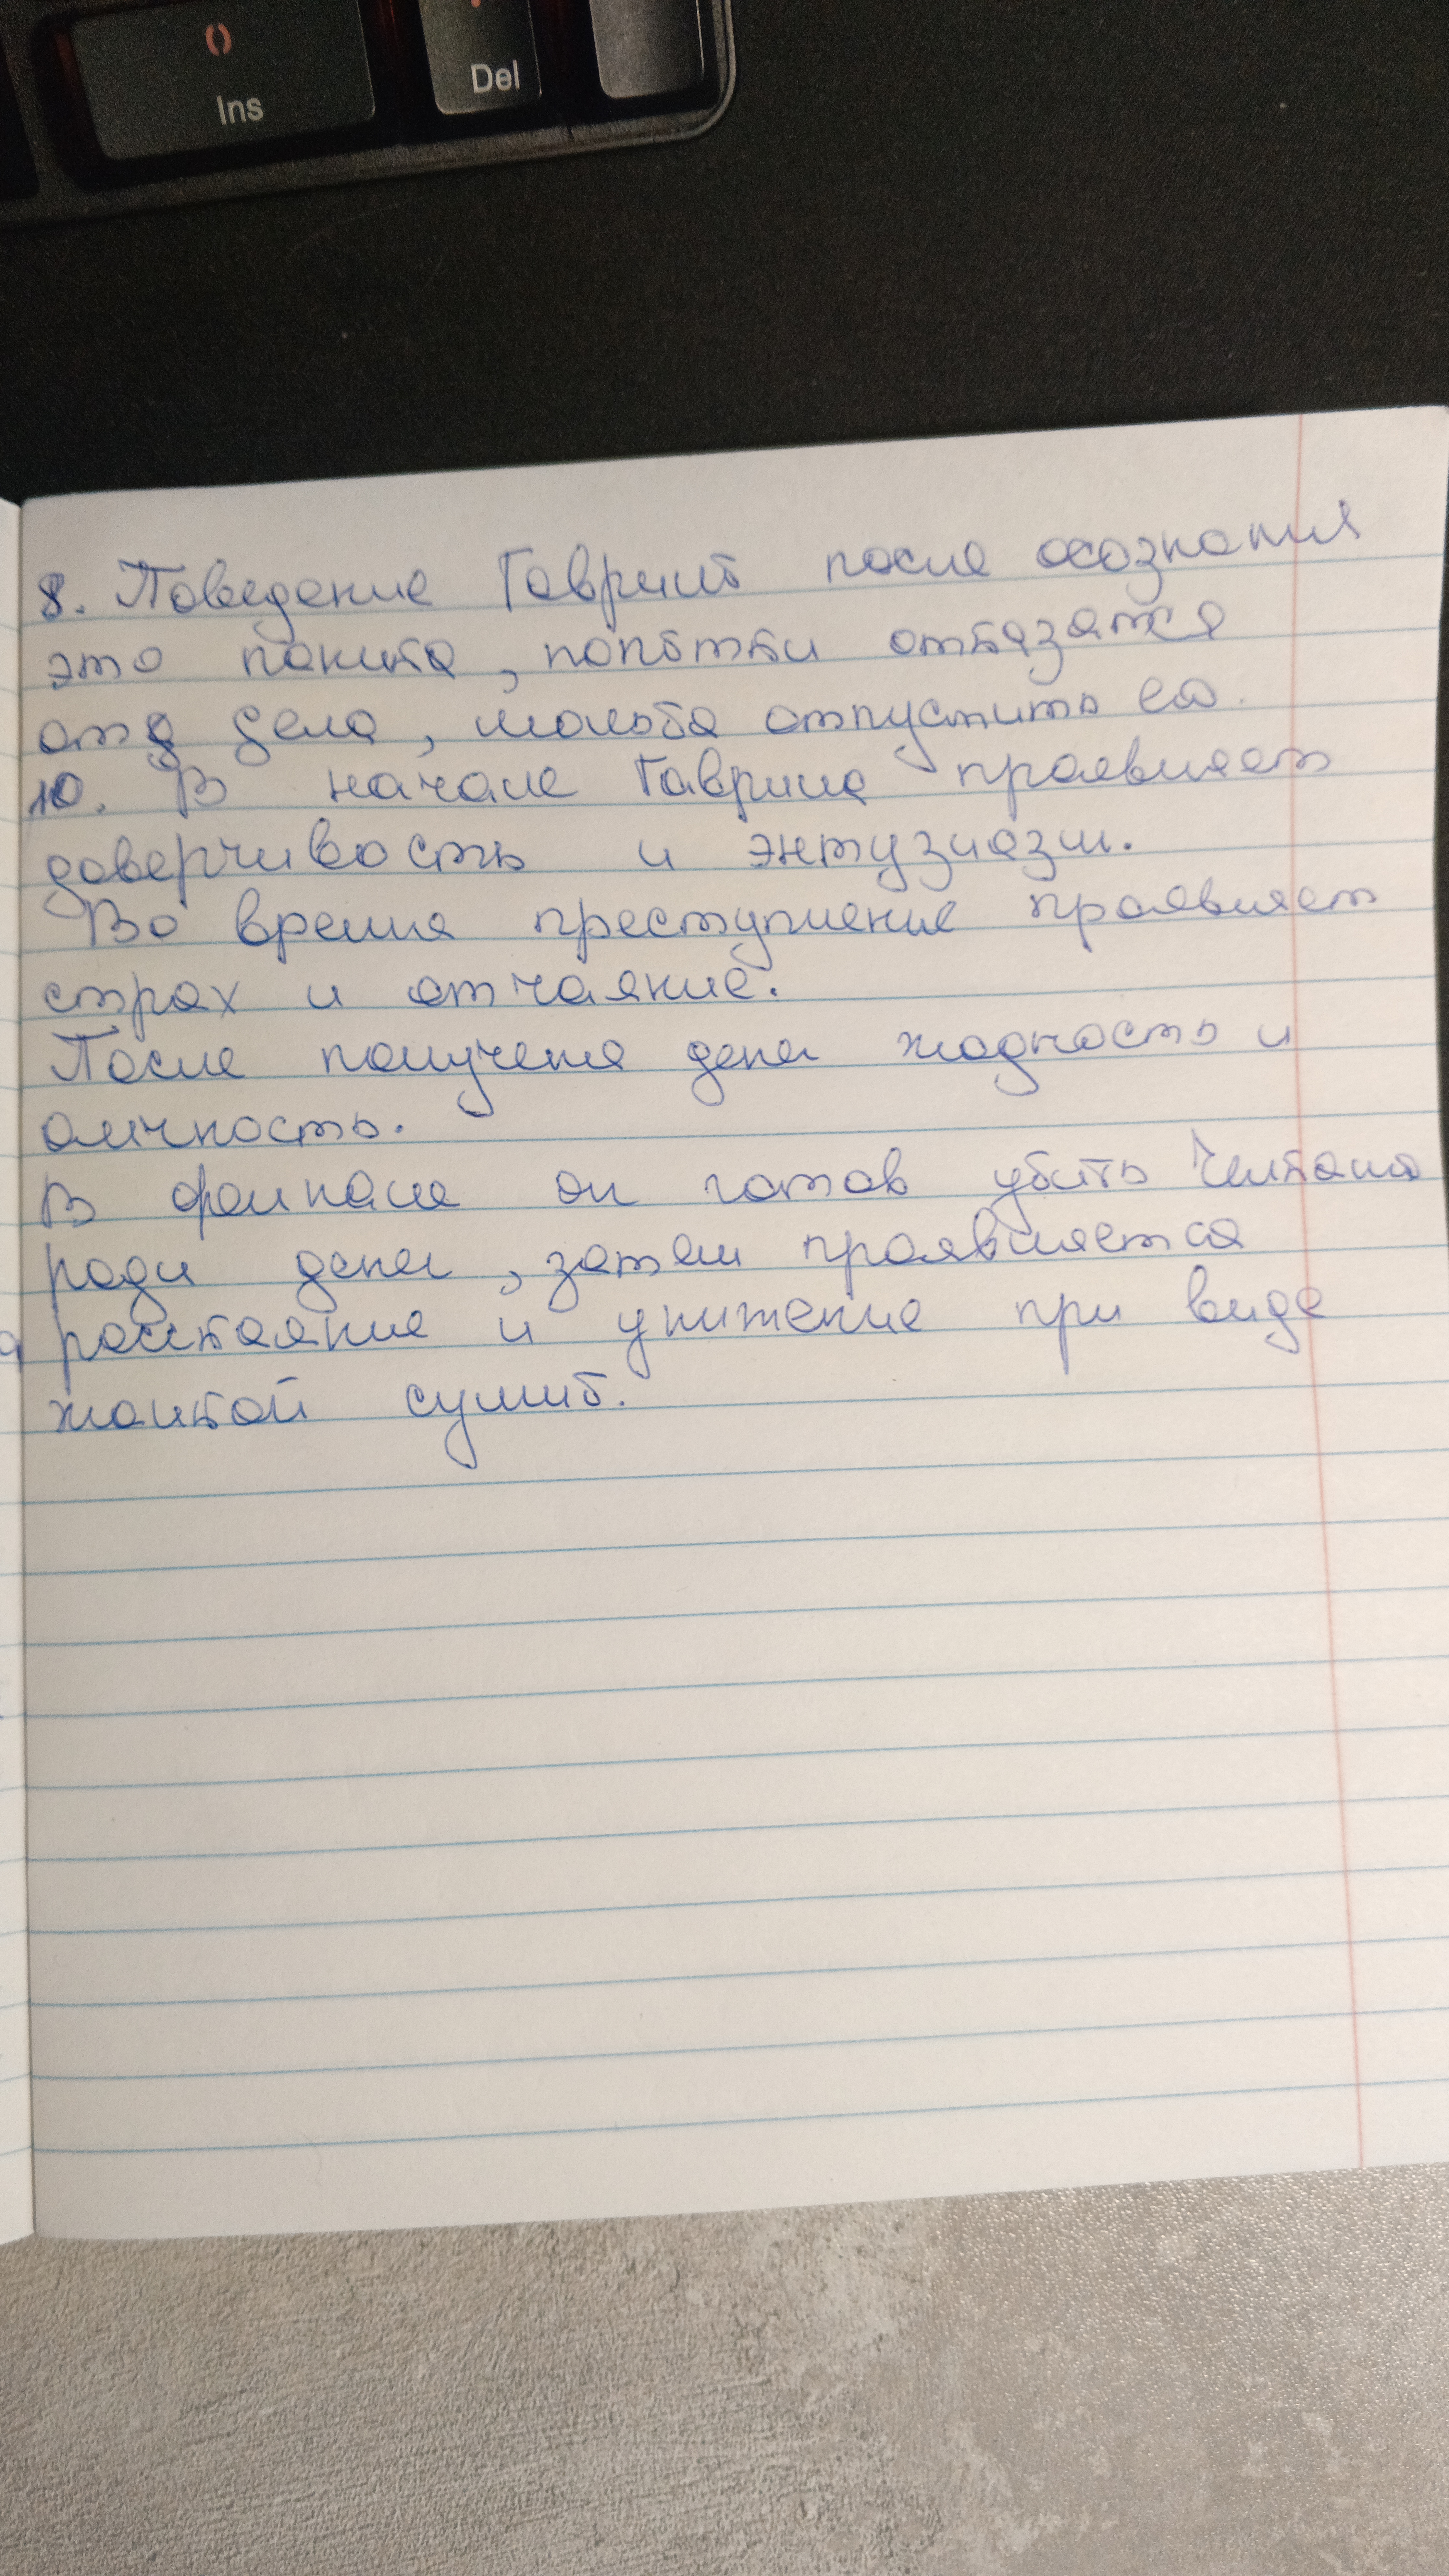 Ins
Del
8. Поведение Гаврилы после осознания
это паника, попытки отказатся
от дела, мольба отпустить ео.
10. В начале Гаврила проявляет
доверчивость и энтузиазм.
Во время преступление проявляет
страх и отчаяние.
После получения денег жадность и
В финале он готов убить Челкаша
ради денег, затем проявляется
раскаяние и унижение при виде
жалкой суммы.